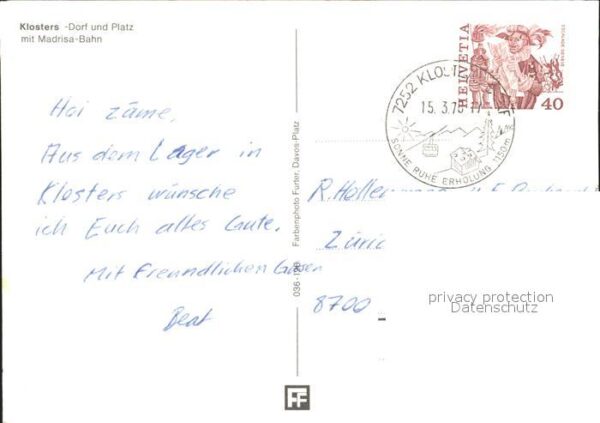 Klosters -Dorf und Platz
mit Madrisa-Bahn
HELVETIA
40
7252 KLOSTERS
15. 3. 78-17
SONNE RUHE ERHOLUNG 1150m
Hoi zäme,
Aus dem Lager in
Klosters wünsche
ich Euch alles Gute.
Mit Freundlichen Grüssen
Beat
036-120 Farbenphoto Furter, Davos-Platz
R.
Züric
8700
privacy protection
Datenschutz
FF